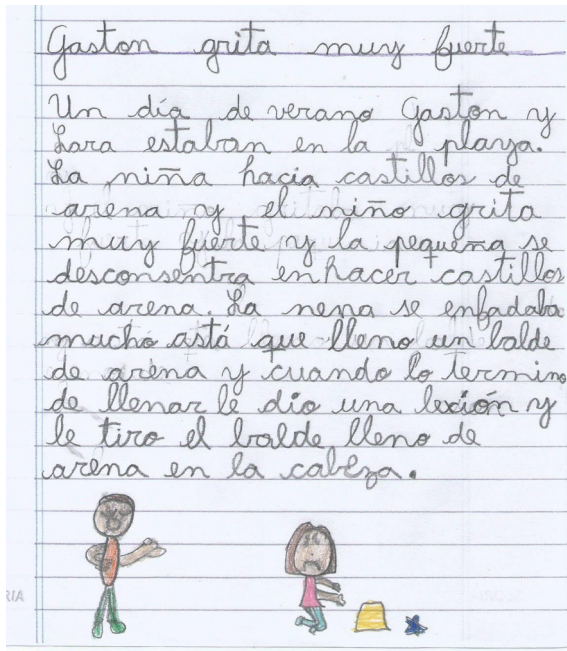 Gaston grita muy fuerte
Un día de verano Gaston y
Lara estaban en la playa.
La niña hacia castillos de
arena y el niño grita
muy fuerte y la pequeña se
desconsentra en hacer castillos
de arena. La nena se enfadaba
mucho astá que lleno un balde
de arena y cuando lo termino
de llenar le dio una lexión y
le tiro el balde lleno de
arena en la cabeza.